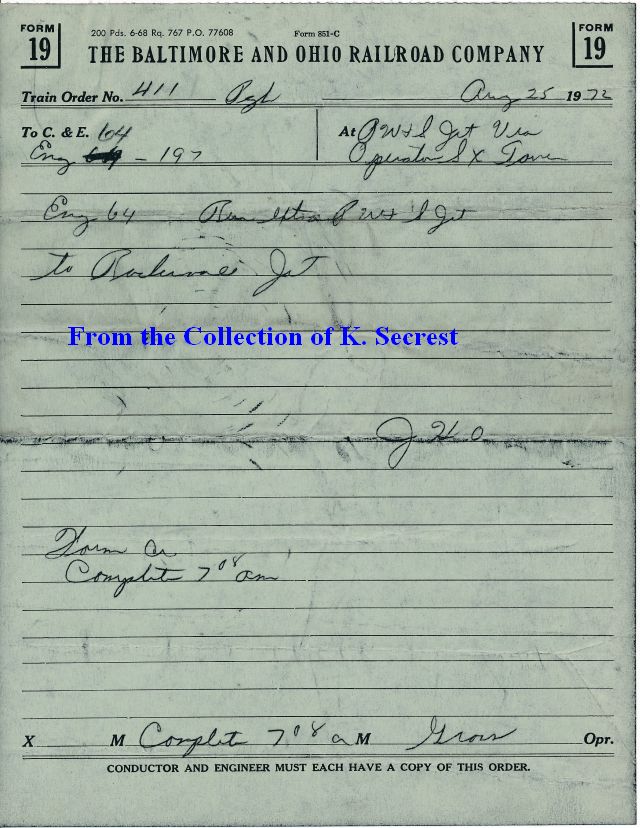 FORM 19
200 Pds. 6-68 Rq. 767 P.O. 77608 Form 851-C
FORM 19
THE BALTIMORE AND OHIO RAILROAD COMPANY
Train Order No. 411 Pgh Aug 25 1972
To C. & E. 64 At P W&S Jct Via
Eng - 197 Operator SX Tower
Eng 64 Run Extra P W&S Jct
to Rockwood Jct
From the Collection of K. Secrest
J H O
Complete 7 08 am
X M Complete 7 08 a M Opr.
CONDUCTOR AND ENGINEER MUST EACH HAVE A COPY OF THIS ORDER.